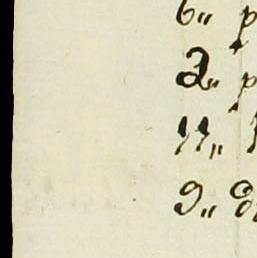 6„ p
2„ p
11„
9„ d